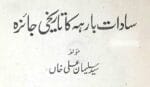 سادات بارہہ کا تاریخی جائزہ
مؤلفہ
سید سلیمان علی خاں